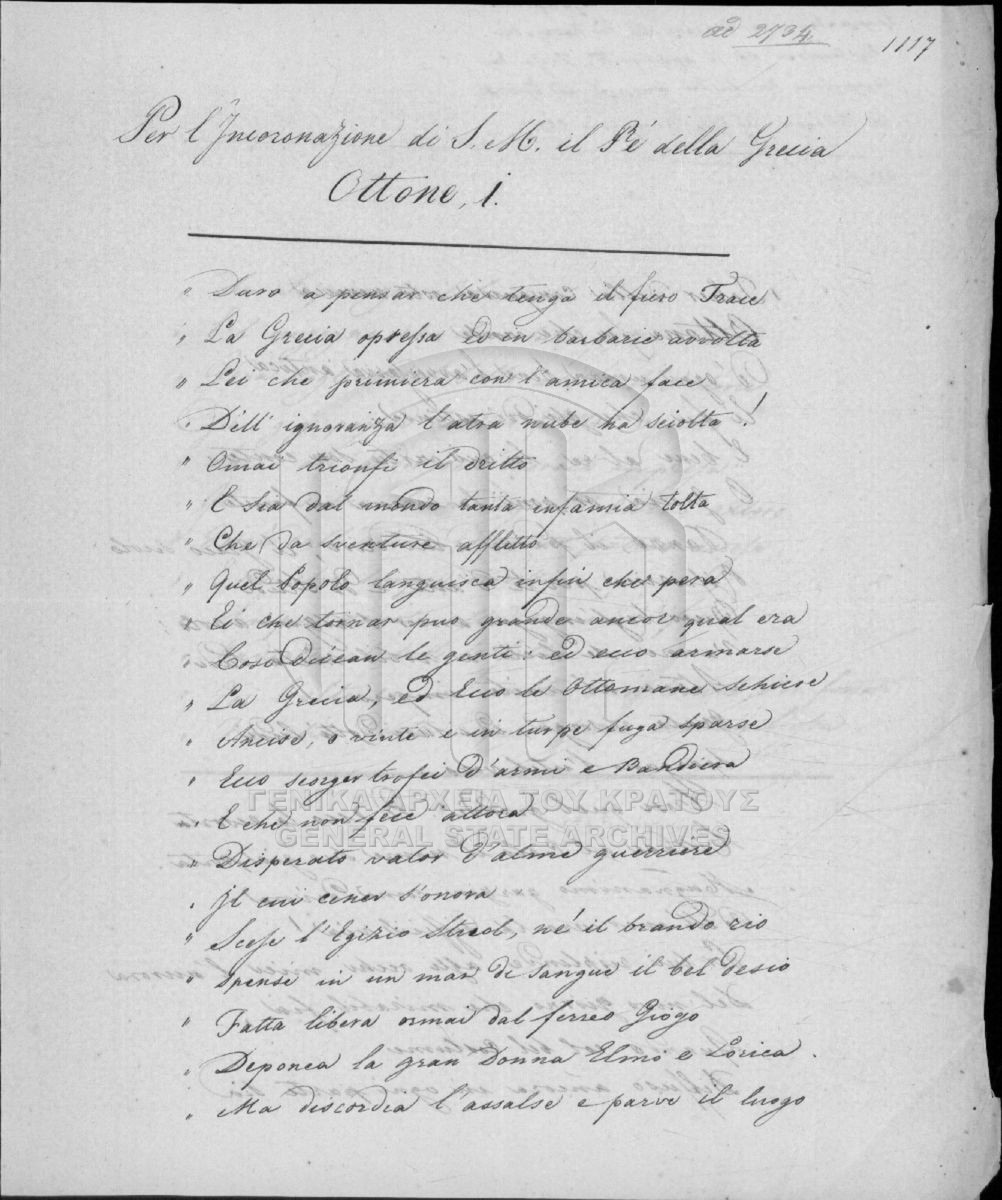 ad 2734
1117
Per l'Incoronazione di S. M. il Ré della Grecia
Ottone, i.
" Duro a pensar che tenga il fiero Trace
" La Grecia opressa ed in barbarie avvolta
" Lei che primiera con l'amica face
" Dell' ignoranza l'atra nube ha sciolta!
" Omai trionfi il dritto
" E sia dal mondo tanta infamia tolta
" Che da sventure afflitto
" Quel Popolo languisca infin che pera
" Ei che tornar puo grande ancor qual era
" Cosi dicean le genti: ed ecco armarse
" La Grecia, ed Ecco le Ottomane schiere
" Ancise, o vinte e in turpe fuga sparse
" Ecco scorger trofei d'armi e Bandiera
" E che non fece allora
ΓΕΝΙΚΑ ΑΡΧΕΙΑ ΤΟΥ ΚΡΑΤΟΥΣ
GENERAL STATE ARCHIVES
" Disperato valor d'alme guerriere
" Il cui cener s'onora
" Scese l'Egizio Struol, né il brando rio
" Spense in un mar di sangue il bel desio
" Fatta libera ormai dal ferreo Giogo
" Deponea la gran Donna Elmo e Lorica.
" Ma discordia l'assalse e parve il luogo